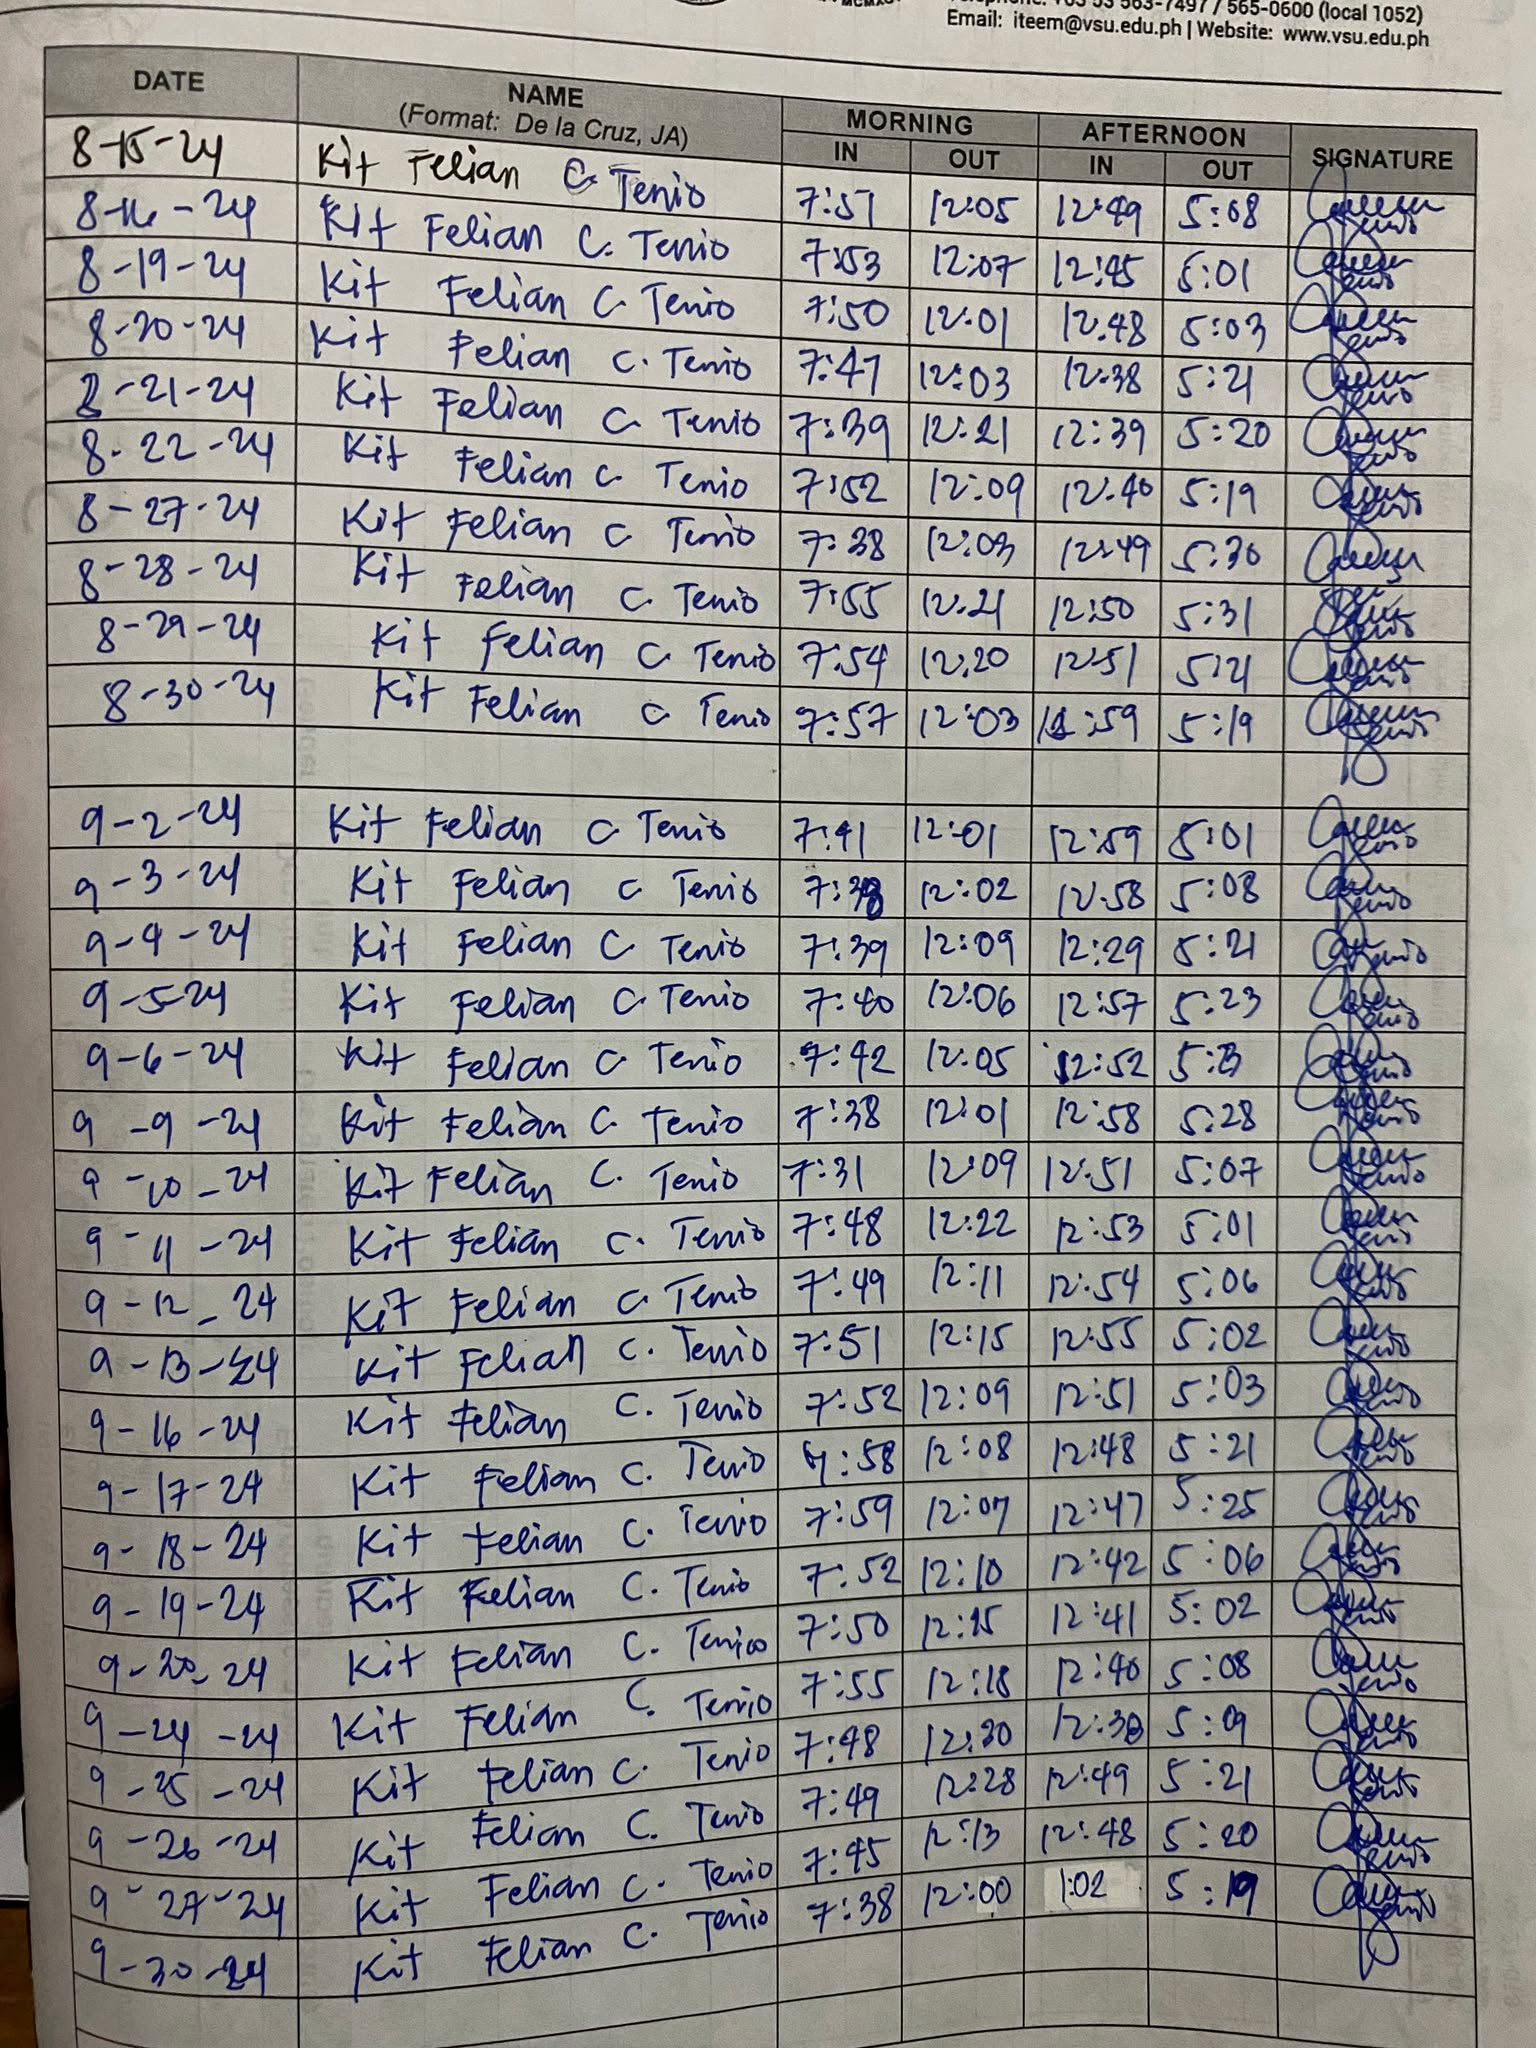 565-0600 (local 1052)
Email: iteem@vsu.edu.ph | Website: www.vsu.edu.ph
DATE NAME (Format: De la Cruz, JA) MORNING AFTERNOON SIGNATURE
IN OUT IN OUT
8-15-24 Kit Felian C. Tenio 7:51 12:05 12:49 5:08
8-16-24 Kit Felian C. Tenio 7:53 12:07 12:45 5:01
8-19-24 Kit Felian C. Tenio 7:50 12:01 12:48 5:03
8-20-24 Kit Felian C. Tenio 7:47 12:03 12:38 5:21
8-21-24 Kit Felian C. Tenio 7:39 12:21 12:39 5:20
8-22-24 Kit Felian C. Tenio 7:52 12:09 12:40 5:19
8-27-24 Kit Felian C Tenio 7:38 12:03 12:49 5:30
8-28-24 Kit Felian C. Tenio 7:55 12:21 12:50 5:31
8-29-24 Kit Felian C. Tenio 7:54 12:20 12:51 5:21
8-30-24 Kit Felian C Tenio 7:57 12:03 12:59 5:19
9-2-24 Kit Felian C Tenio 7:41 12:01 12:59 5:01
9-3-24 Kit Felian C Tenio 7:38 12:02 12:58 5:08
9-4-24 Kit Felian C Tenio 7:39 12:09 12:29 5:21
9-5-24 Kit Felian C. Tenio 7:40 12:06 12:57 5:23
9-6-24 Kit Felian C Tenio 7:42 12:05 12:52
9-9-24 Kit Felian C. Tenio 7:38 12:01 12:58 5:28
9-10-24 Kit Felian C. Tenio 7:31 12:09 12:51 5:07
9-11-24 Kit Felian C. Tenio 7:48 12:22 12:53 5:01
9-12-24 Kit Felian C Tenio 7:49 12:11 12:54 5:06
9-13-24 Kit Felian C. Tenio 7:51 12:15 12:55 5:02
9-16-24 Kit Felian C. Tenio 7:52 12:09 12:51 5:03
9-17-24 Kit Felian C. Tenio 7:58 12:08 12:48 5:21
9-18-24 Kit Felian C. Tenio 7:59 12:07 12:47 5:25
9-19-24 Kit Felian C. Tenio 7:52 12:10 12:42 5:06
9-20-24 Kit Felian C. Tenio 7:50 12:15 12:41 5:02
9-24-24 Kit Felian C. Tenio 7:55 12:18 12:40 5:08
9-25-24 Kit Felian C. Tenio 7:48 12:30 5:09
9-26-24 Kit Felian C. Tenio 7:49 12:28 12:49 5:21
9-27-24 Kit Felian C. Tenio 7:45 12:13 12:48 5:20
9-30-24 Kit Felian C. Tenio 7:38 12:00 1:02 5:19